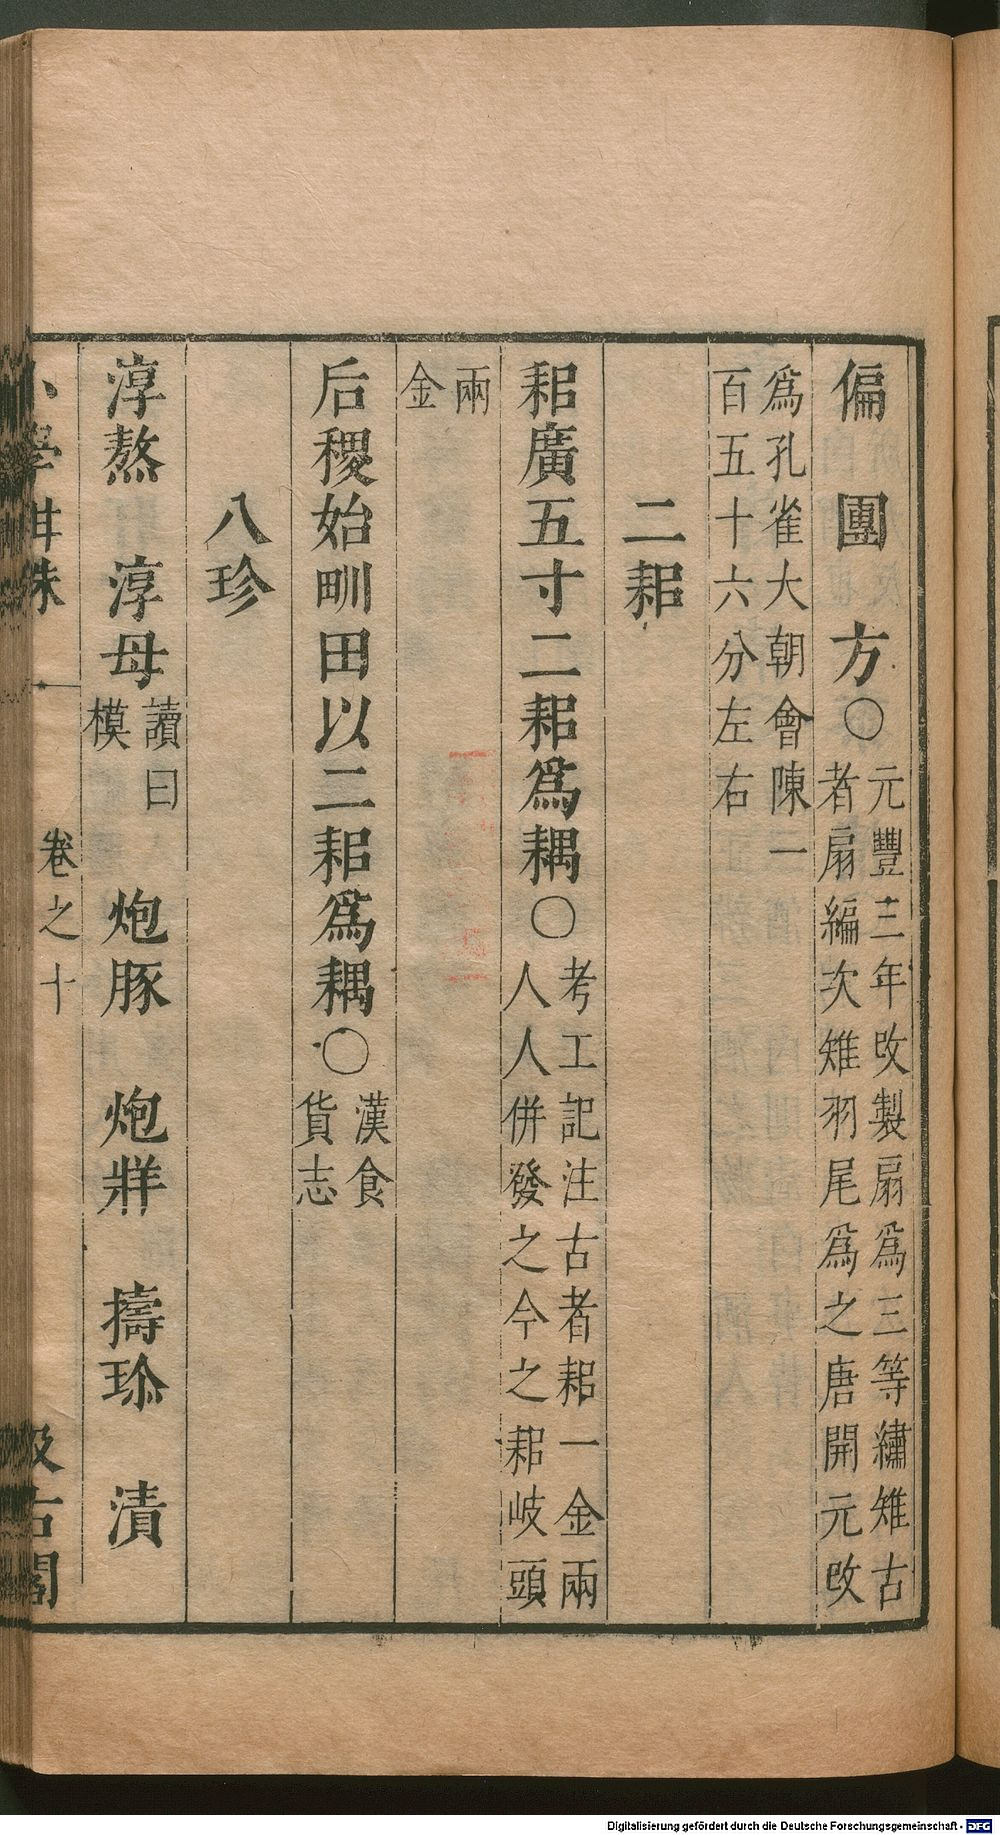 偏　團　方○元豐三年改製扇爲三等繡雉古
者扇編次雉羽尾爲之唐開元改
爲孔雀大朝會陳一
百五十六分左右
二耜
耜廣五寸二耜爲耦○考工記注古者耜一金兩
人人併發之今之耜岐頭
兩
金
后稷始甽田以二耜爲耦○漢食
貨志
八珍
淳熬　淳母讀曰
模　炮豚　炮牂　擣珍　漬
小學紺珠　卷之十　汲古閣
Digitalisierung gefördert durch die Deutsche Forschungsgemeinschaft - DFG